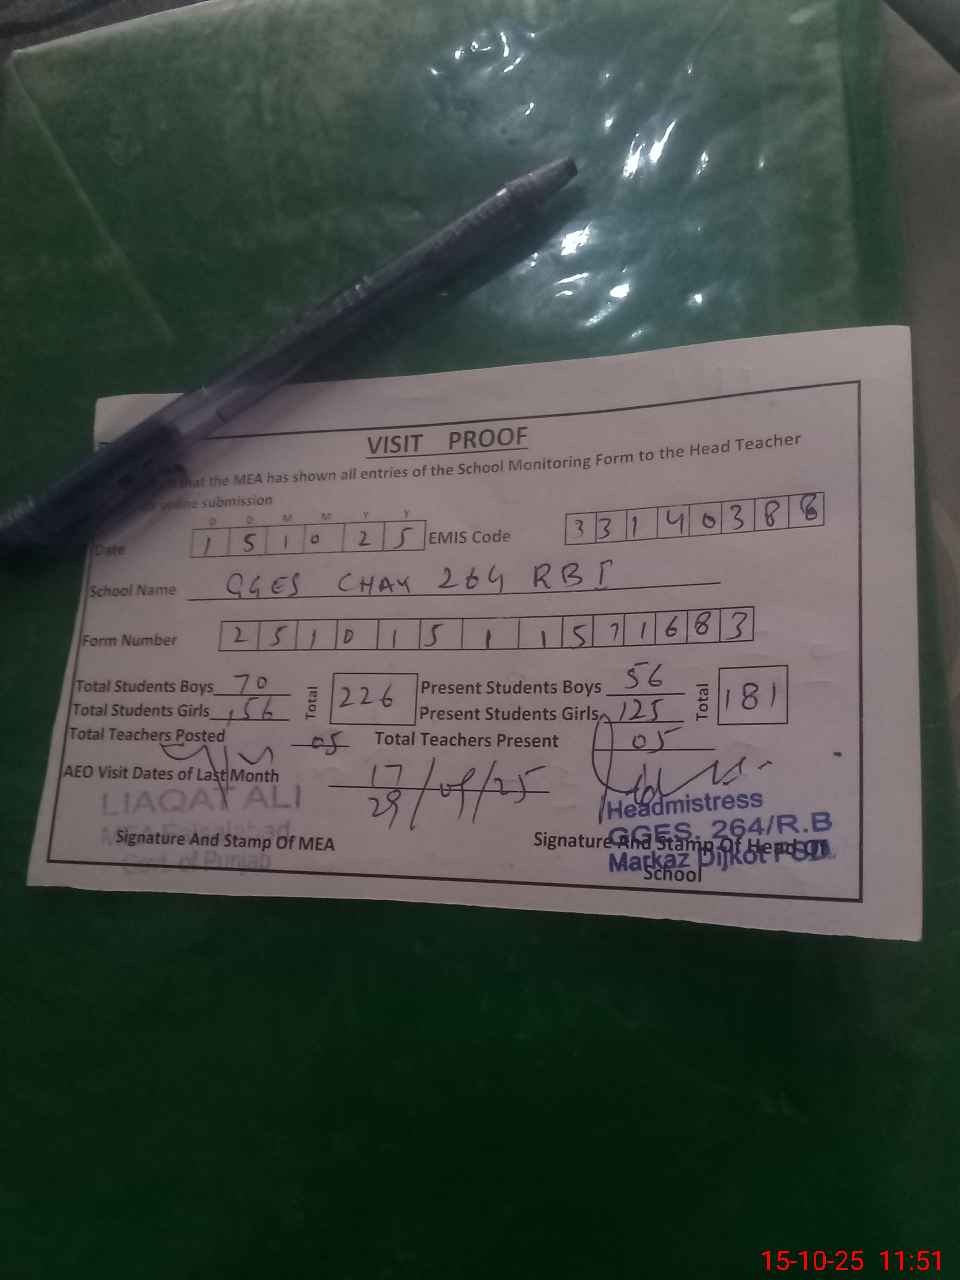 VISIT PROOF
that the MEA has shown all entries of the School Monitoring Form to the Head Teacher
online submission
D D M M Y Y
Date 1 5 1 0 2 5 EMIS Code 3 3 1 4 0 3 8 8
School Name GGES CHAK 264 RB I
Form Number 2 5 1 0 1 5 1 1 5 7 1 6 8 3
Total Students Boys 70 Total 226 Present Students Boys 56 Total 181
Total Students Girls 156 Present Students Girls 125
Total Teachers Posted 05 Total Teachers Present 05
AEO Visit Dates of Last Month 17 29 /09/25
LIAQAT ALI
Signature And Stamp Of MEA
Govt. of Punjab
Headmistress
GGES. 264/R.B
Signature And Stamp Of Head Of School
Markaz Dijkot FSD.
15-10-25 11:51